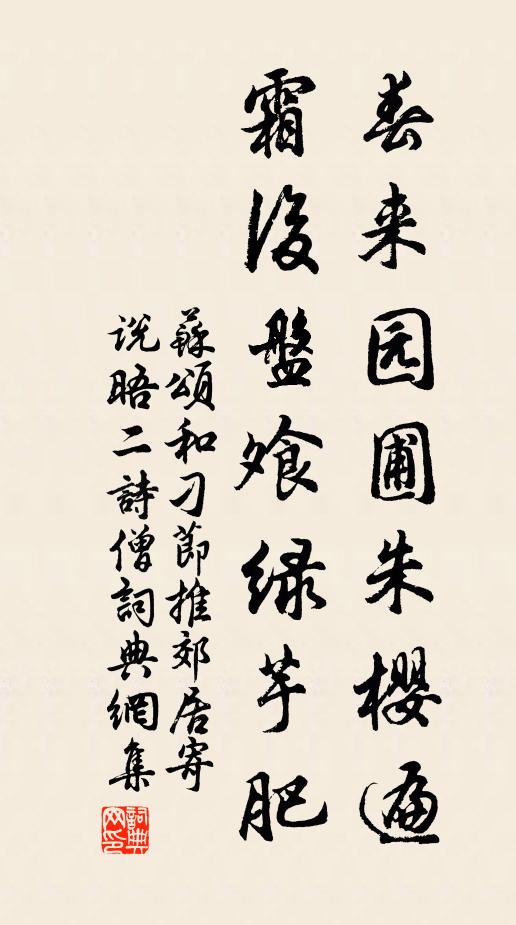 春来园圃朱樱遍
霜後盤飧绿芋肥
蘇頌和刁節推郊居寄
説晤二詩僧詞典網集
詞典网印